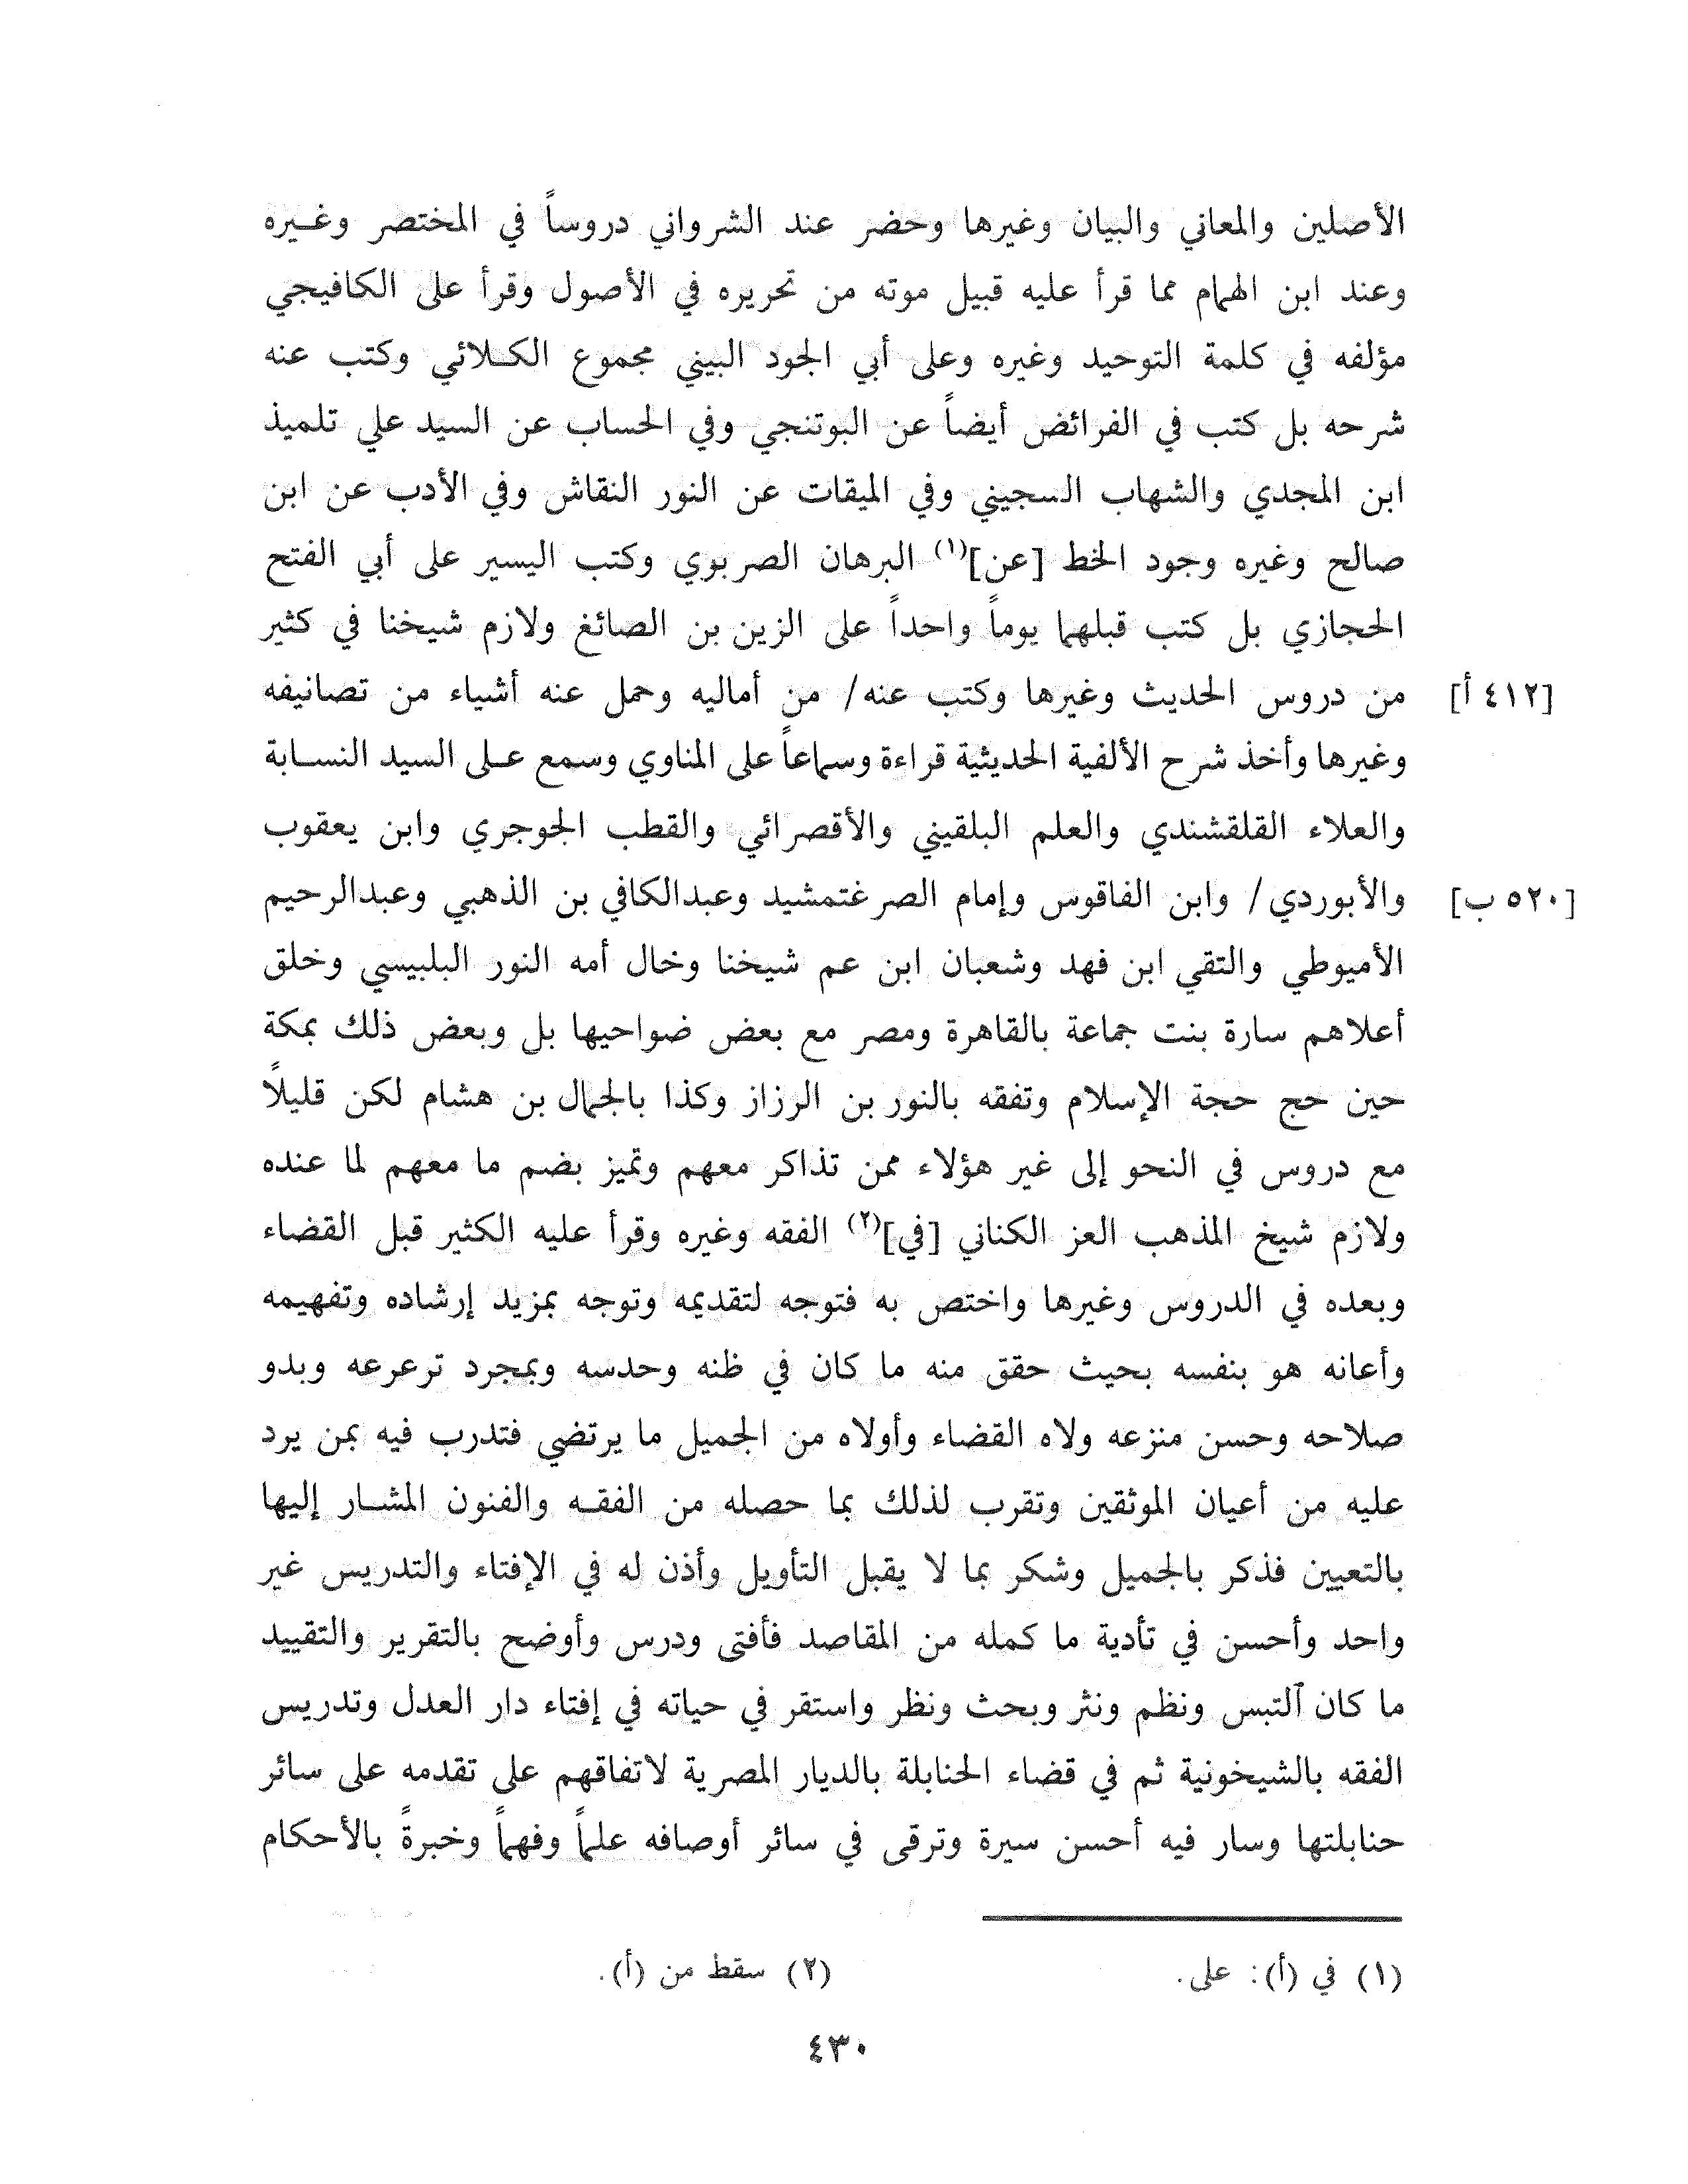 الأصلين والمعاني والبيان وغيرها وحضر عند الشرواني دروساً في المختصر وغيره
وعند ابن الهمام مما قرأ عليه قبيل موته من تحريره في الأصول وقرأ على الكافيجي
مؤلفه في كلمة التوحيد وغيره وعلى أبي الجود البيني مجموع الكلائي وكتب عنه
شرحه بل كتب في الفرائض أيضاً عن البوتنجي وفي الحساب عن السيد علي تلميذ
ابن المجدي والشهاب السجيني وفي الميقات عن النور النقاش وفي الأدب عن ابن
صالح وغيره وجود الخط [عن](١) البرهان الصربوي وكتب اليسير على أبي الفتح
الحجازي بل كتب قبلهما يوماً واحداً على الزين بن الصائغ ولازم شيخنا في كثير
من دروس الحديث وغيرها وكتب عنه/ من أماليه وحمل عنه أشياء من تصانيفه [٤١٢ أ]
وغيرها وأخذ شرح الألفية الحديثية قراءة وسماعاً على المناوي وسمع على السيد النسابة
والعلاء القلقشندي والعلم البلقيني والأقصرائي والقطب الجوجري وابن يعقوب
والأبوردي/ وابن الفاقوس وإمام الصرغتمشيد وعبدالكافي بن الذهبي وعبدالرحيم [٥٢٠ ب]
الأميوطي والتقي ابن فهد وشعبان ابن عم شيخنا وخال أمه النور البلبيسي وخلق
أعلاهم سارة بنت جماعة بالقاهرة ومصر مع بعض ضواحيها بل وبعض ذلك بمكة
حين حج حجة الإسلام وتفقه بالنور بن الرزاز وكذا بالجمال بن هشام لكن قليلاً
مع دروس في النحو إلى غير هؤلاء ممن تذاكر معهم وتميز بضم ما معهم لما عنده
ولازم شيخ المذهب العز الكناني [في](٢) الفقه وغيره وقرأ عليه الكثير قبل القضاء
وبعده في الدروس وغيرها واختص به فتوجه لتقديمه وتوجه بمزيد إرشاده وتفهيمه
وأعانه هو بنفسه بحيث حقق منه ما كان في ظنه وحدسه وبمجرد ترعرعه وبدو
صلاحه وحسن منزعه ولاه القضاء وأولاه من الجميل ما يرتضي فتدرب فيه بمن يرد
عليه من أعيان الموثقين وتقرب لذلك بما حصله من الفقه والفنون المشار إليها
بالتعيين فذكر بالجميل وشكر بما لا يقبل التأويل وأذن له في الإفتاء والتدريس غير
واحد وأحسن في تأدية ما كمله من المقاصد فأفتى ودرس وأوضح بالتقرير والتقييد
ما كان ٱلتبس ونظم ونثر وبحث ونظر واستقر في حياته في إفتاء دار العدل وتدريس
الفقه بالشيخونية ثم في قضاء الحنابلة بالديار المصرية لاتفاقهم على تقدمه على سائر
حنابلتها وسار فيه أحسن سيرة وترقى في سائر أوصافه علماً وفهماً وخبرةً بالأحكام
(١) في (أ): على.
(٢) سقط من (أ).
٤٣٠